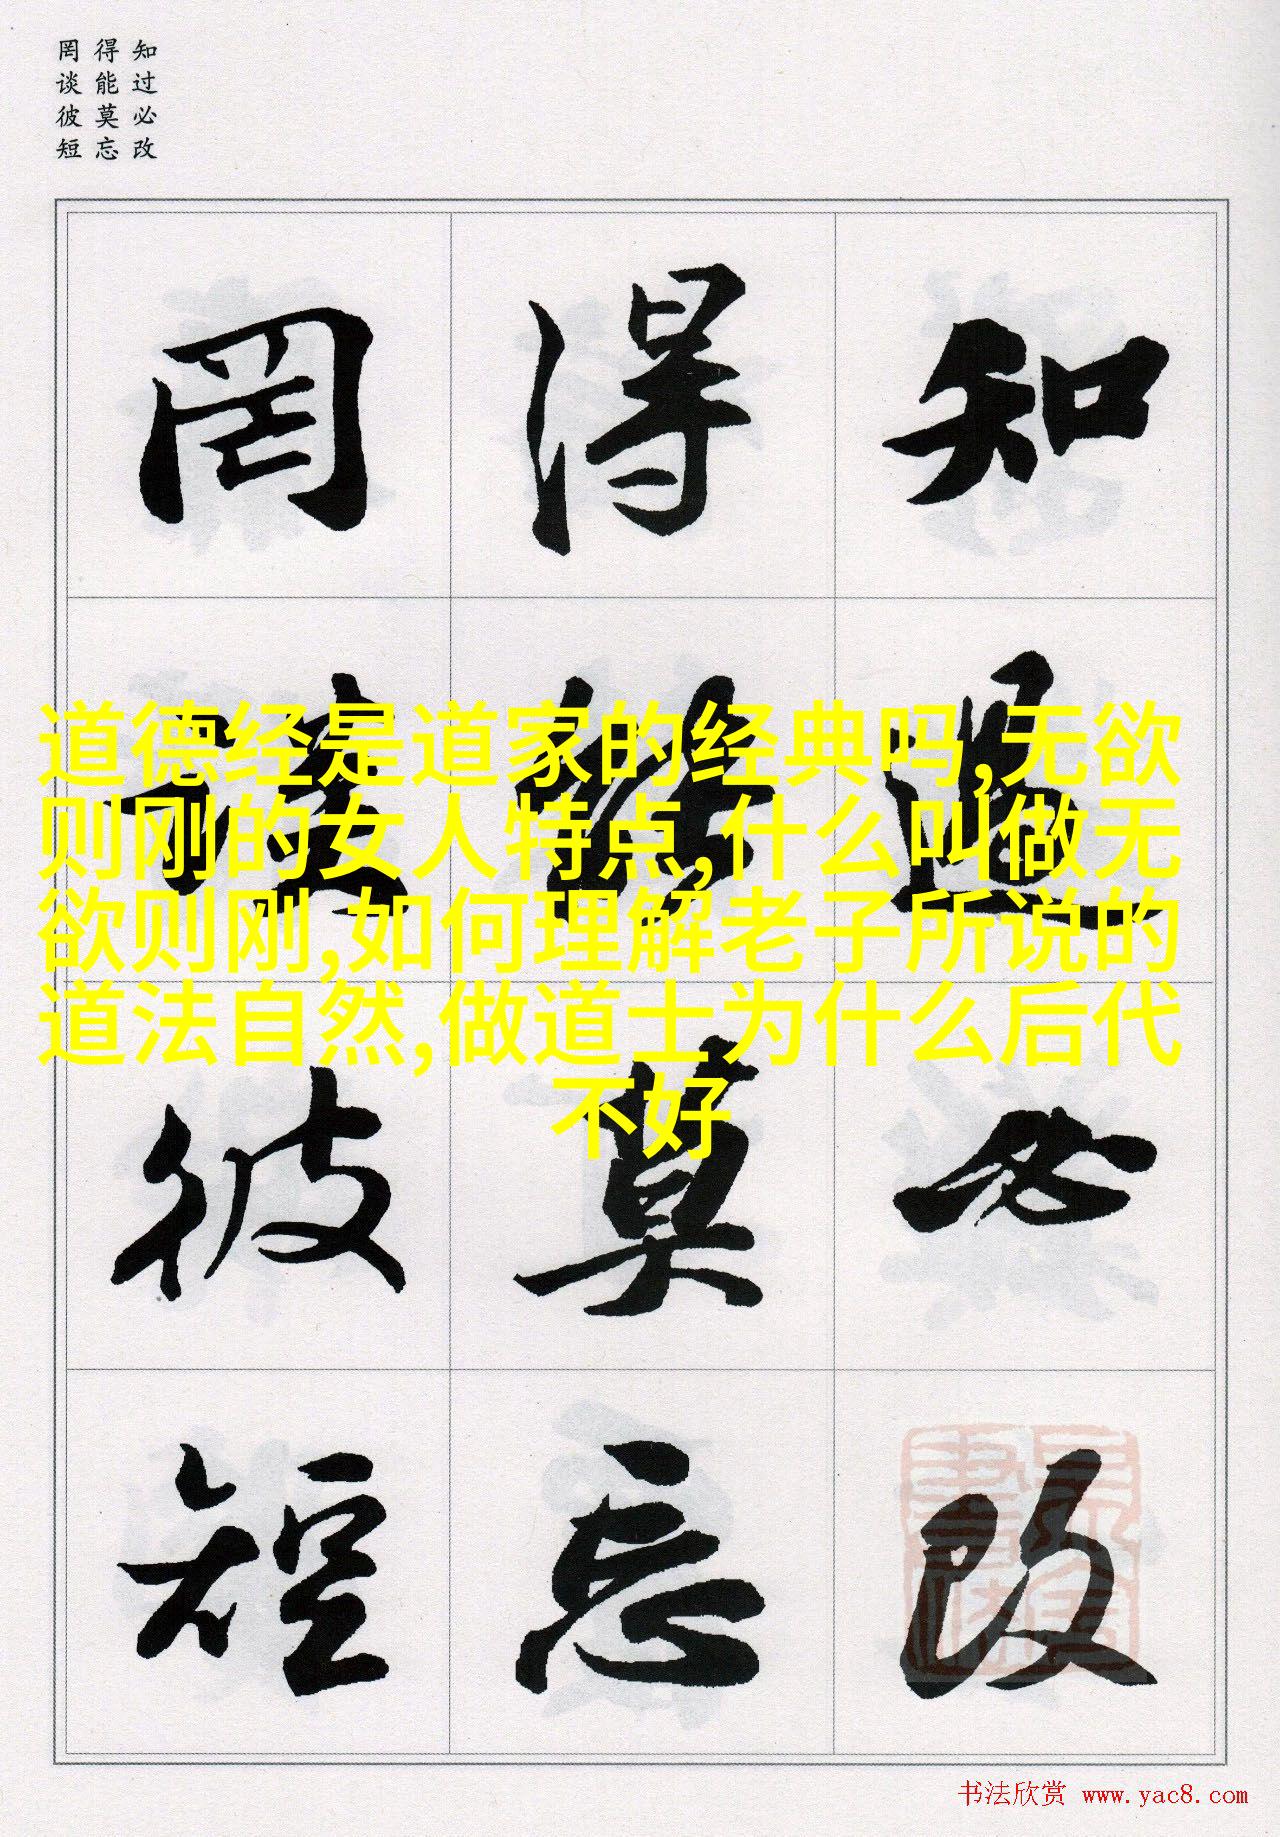 知过必改
得能莫忘
罔谈彼短
知过必改
得能莫忘
罔谈彼短
道德经是道家的经典吗,无欲
则刚的女人特点,什么叫做无
欲则刚,如何理解老子所说的
道法自然,做道士为什么后代
不好
书法欣赏 www.yac8.com